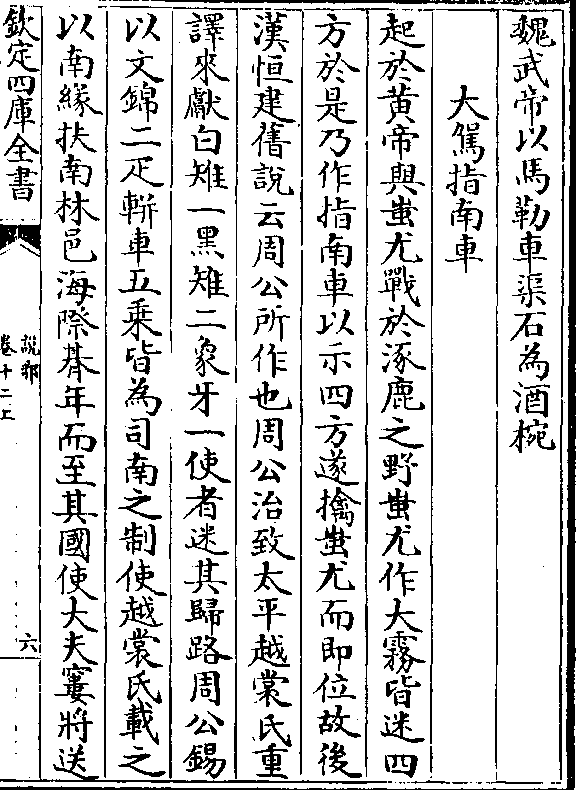 魏武帝以馬勒車渠石為酒椀
大駕指南車
起於黄帝與蚩尤戰於涿鹿之野蚩尤作大霧皆迷四
方於是乃作指南車以示四方遂擒蚩尤而即位故後
漢恒建舊說云周公所作也周公治致太平越裳氏重
譯來獻白雉一黑雉二象牙一使者迷其歸路周公錫
以文錦二疋軿車五乗皆為司南之制使越裳氏載之
以南緣扶南林邑海際朞年而至其國使大夫窶將送
欽定四庫全書
説郛
卷十二上
六